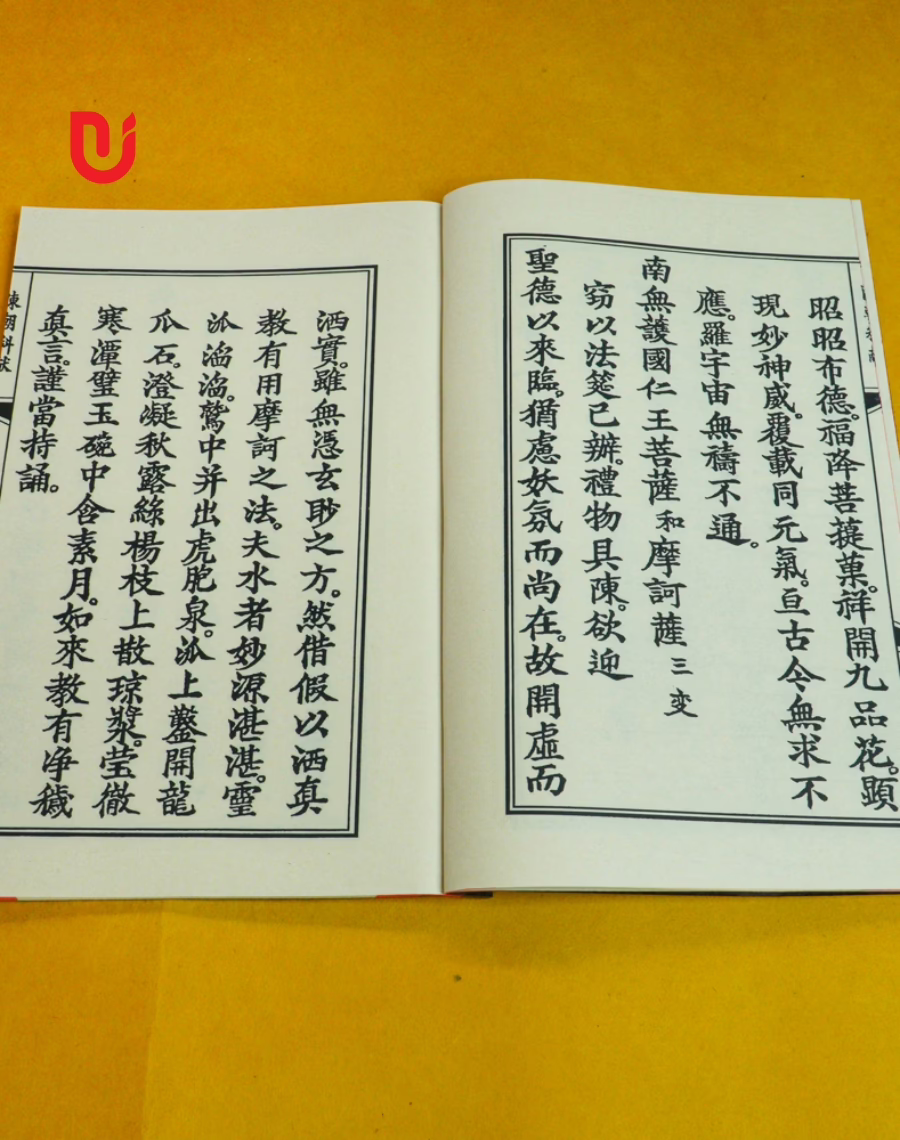 昭昭布德。福降菩提菓。祥開九品花。顕
現妙神威。覆載同元氣。亘古今無求不
應。羅宇宙無禱不通。
南無護國仁王菩薩和摩訶薩三变
窃以法筵已辦。禮物具陳。欲迎
聖德以來臨。猶慮妖氛而尚在。故開虛而
洒實。雖無憑玄眇之方。然借假以洒真
教有用摩訶之法。夫水者妙源湛湛。靈
派滔滔。鷲中并出虎胞泉。派上鑿開龍
爪石。澄凝秋露綠楊枝上散琼漿。莹徹
寒潭璧玉碗中含素月。如來教有净穢
真言。謹當持誦。
陳朝科